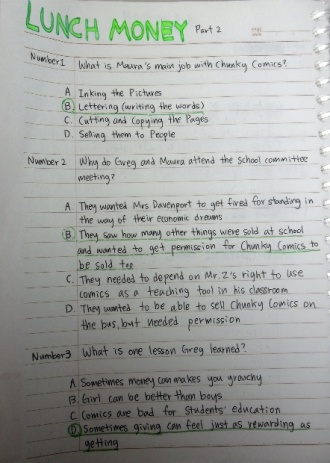 LUNCH MONEY Part 2
Number 1 What is Maura's main job with Chunky Comics?
A Inking the Pictures
B. Lettering (writing the words)
C. Cutting and Copying the Pages
D. Selling them to People
Number 2 Why do Greg and Maura attend the school committee
meeting?
A They wanted Mrs Davenport to get fired for standing in
the way of their economic dreams
B. They saw how many other things were sold at school
and wanted to get permission for Chunky Comics to
be sold too
C. They needed to depend on Mr. Z's right to use
comics as a teaching tool in his classroom
D. They wanted to be able to sell Chunky Comics on
the bus, but needed permission
Number 3 What is one lesson Greg learned?
A. Sometimes money can makes you grouchy
B. Girl can be better than boys
C. Comics are bad for students' education
D. Sometimes giving can feel just as rewarding as
getting